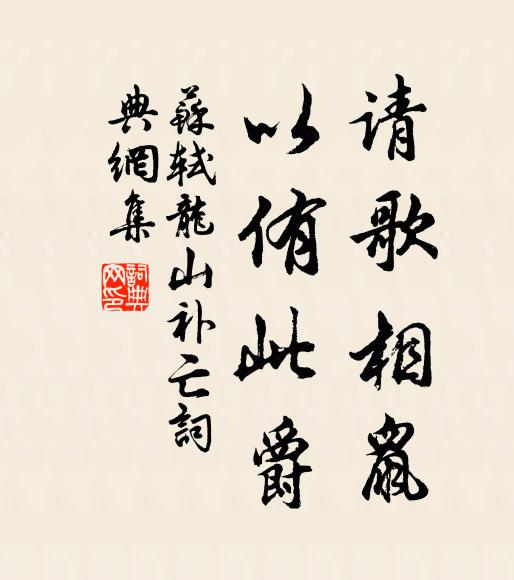 请歌相鼠
以侑此爵
蘇軾龍山补亡詞
典網集
詞典网印